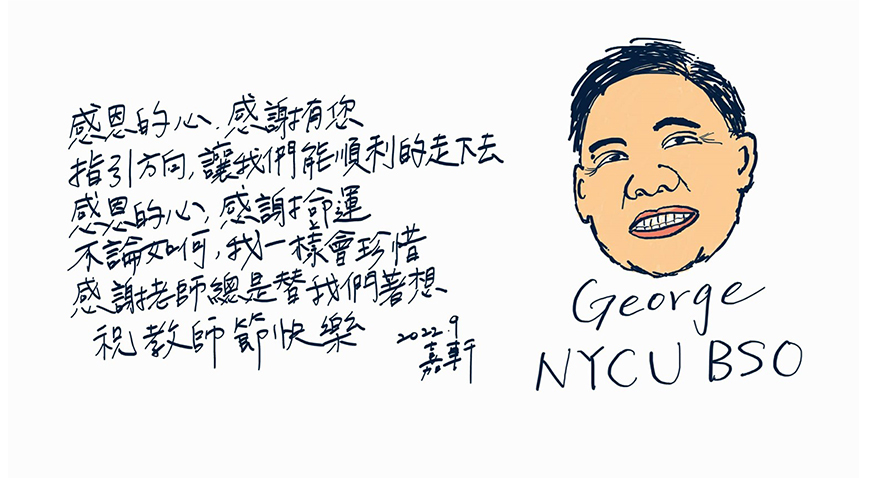 感恩的心,感謝有您
指引方向,讓我們能順利的走下去
感恩的心,感謝命運
不論如何,我一樣會珍惜
感謝老師總是替我們著想
祝教師節快樂
2022.9
嘉軒
George
NYCU BSO